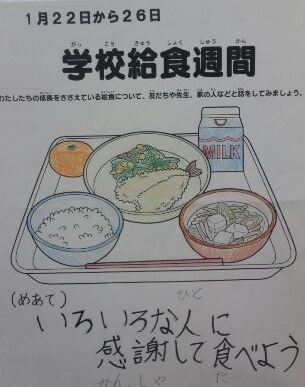 1月22日から26日
がっ こう きゅう しょく しゅう かん
学校給食週間
わたしたちの成長をささえている給食について、友だちや先生、家の人などと話をしてみましょう。
MILK
(めあて)
ひと
いろいろな人に
感謝して食べよう
かんしゃ た